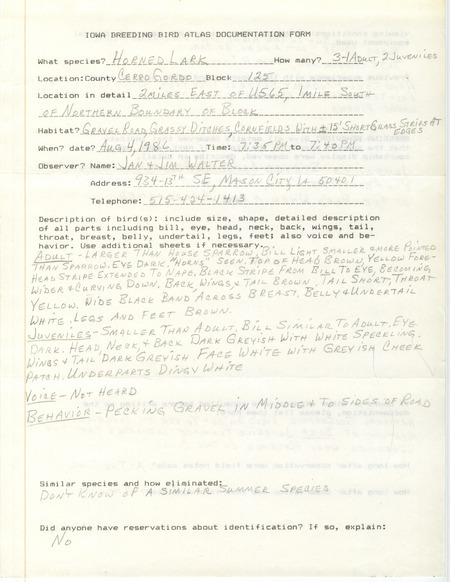 IOWA BREEDING BIRD ATLAS DOCUMENTATION FORM
What species? HORNED LARK How many? 3-1 ADULT, 2 JUVENILES
Location: County CERRO GORDO Block 125
Location in detail 2 MILES EAST OF US 65, 1 MILE SOUTH
OF NORTHERN BOUNDARY OF BLOCK
Habitat? GRAVEL ROAD, GRASSY DITCHES, CORNFIELDS WITH ± 15' SHORT GRASS STRIPS AT EDGES
When? date? AUG 4, 1986 Time: 7:35 PM to 7:40 PM
Observer? Name: JAN & JIM WALTER
Address: 934-13TH SE, MASON CITY, IA 50401
Telephone: 515-424-1413
Description of bird(s): include size, shape, detailed description
of all parts including bill, eye, head, neck, back, wings, tail,
throat, breast, belly, undertail, legs, feet: also voice and be-
havior. Use additional sheets if necessary.
ADULT - LARGER THAN HOUSE SPARROW, BILL LIGHT SMALLER & MORE POINTED
THAN SPARROW. EYE DARK "HORNS" SEEN. TOP OF HEAD BROWN, YELLOW FORE-
HEAD STRIPE EXTENDED TO NAPE. BLACK STRIPE FROM BILL TO EYE, BECOMING
WIDER & CURVING DOWN. BACK, WINGS & TAIL BROWN. TAIL SHORT, THROAT
YELLOW. WIDE BLACK BAND ACROSS BREAST, BELLY & UNDERTAIL
WHITE. LEGS AND FEET BROWN.
JUVENILES - SMALLER THAN ADULT. BILL SIMILAR TO ADULT. EYE
DARK. HEAD, NECK, & BACK DARK GREYISH WITH WHITE SPECKLING.
WINGS & TAIL DARK GREYISH FACE WHITE WITH GREYISH CHEEK
PATCH. UNDERPARTS DINGY WHITE
VOICE - NOT HEARD
BEHAVIOR - PECKING GRAVEL IN MIDDLE & TO SIDES OF ROAD
Similar species and how eliminated:
DON'T KNOW OF A SIMILAR SUMMER SPECIES
Did anyone have reservations about identification? If so, explain:
NO